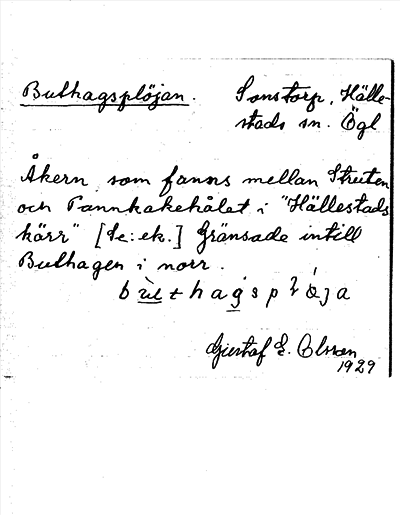 Buthagsplöjan. Sonstorp, Hälle-
stads sn. Ögl
Åkern som fanns mellan Struten
och Pannkakehålet i "Hällestads
kärr" [Le: ek.] Gränsade intill
Buthagen i norr.
Gustaf E. Olsson
1929